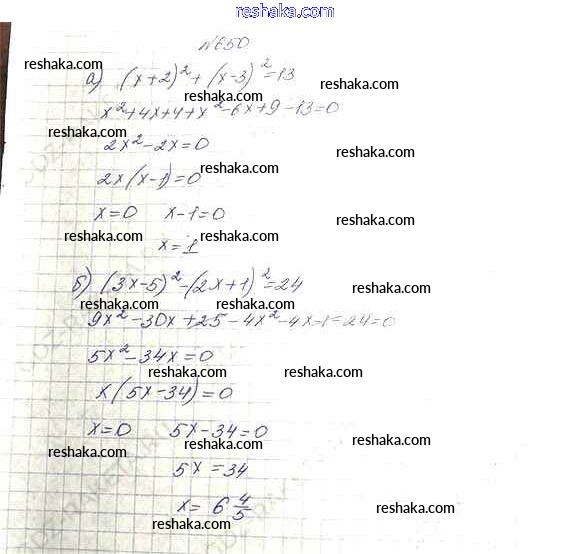 reshaka.com
№650
reshaka.com reshaka.com
а) (x+2)² + (x-3)² = 13
reshaka.com reshaka.com
x²+4x+4+x²-6x+9-13=0
reshaka.com
2x²-2x=0
reshaka.com
reshaka.com
2x(x-1)=0
x=0 x-1=0
reshaka.com
reshaka.com reshaka.com
x=1
б) (3x-5)²-(2x+1)²=24
reshaka.com
reshaka.com reshaka.com
9x²-30x+25-4x²-4x-1-24=0
5x²-34x=0
reshaka.com reshaka.com
x(5x-34)=0
x=0 5x-34=0
reshaka.com reshaka.com
reshaka.com
5x=34
x= 6 4/5
reshaka.com
reshaka.com